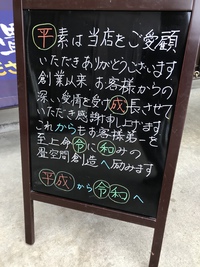 平素は当店をご愛顧
いただきありがとうございます
創業以来お客様からの
深い愛情を受け成長させて
いただき感謝申し上げます
これからもお客様第一を
至上命令に和みの
畳空間創造へ励みます
平成から令和へ